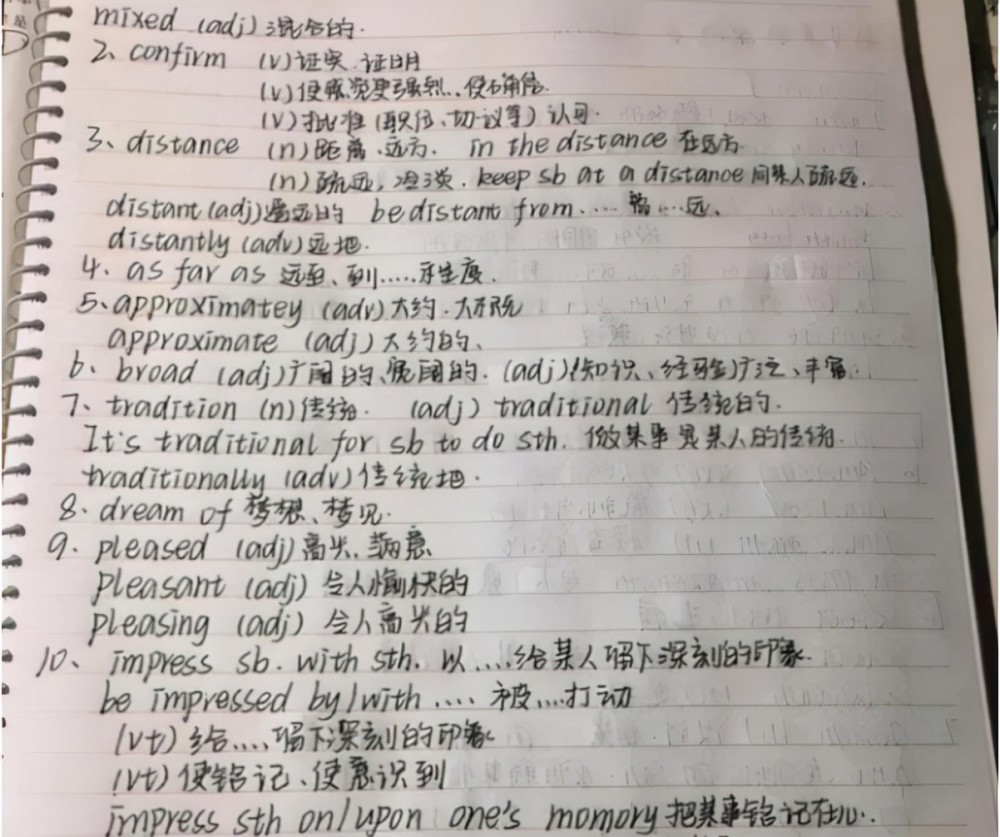 mixed (adj) 混合的.
2、confirm (v)证实.证明
(v)使感觉更强烈..使确信.
(v)批准(职位、协议等)认可.
3、distance (n)距离.远方. in the distance 在远方.
(n)疏远,冷淡.keep sb at a distance 同某人疏远.
distant(adj)遥远的 be distant from..... 离...远、
distantly (adv)远地.
4. as far as 远至、到.....程度.
5、approximatey (adv)大约.大概
approximate (adj)大约的、
6、broad (adj)广阔的、宽阔的. (adj)(知识、经验)广泛、丰富.
7、tradition (n)传统. (adj) traditional 传统的.
It's traditional for sb to do sth. 做某事是某人的传统.
traditionally (adv)传统地.
8. dream of 梦想、梦见.
9. pleased (adj)高兴.满意
pleasant (adj) 令人愉快的
pleasing (adj) 令人高兴的
10、impress sb. with sth. 以....给某人留下深刻的印象.
be impressed by/with .... 被....打动
(vt)给....留下深刻的印象
(vt)使铭记、使意识到
impress sth on/upon one's momory 把某事铭记在心.